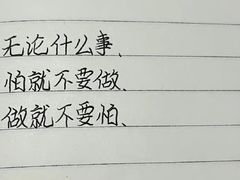 无论什么事、
怕就不要做、
做就不要怕、